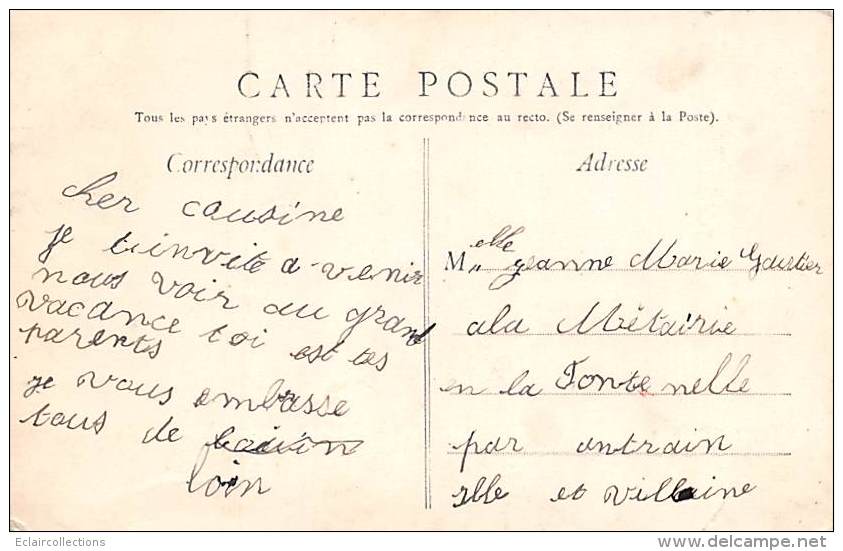 CARTE POSTALE
Tous les pays étrangers n'acceptent pas la correspondance au recto. (Se renseigner à la Poste).
Correspondance
cher cousine
je t'invite a venir
nous voir au grand
vacance toi est tes
parents
je vous embrasse
tous de
loin
Adresse
Melle Jeanne Marie Gautier
ala Métairie
en la Fontenelle
par antrain
ille et villaine
Eclaircollections
www.delcampe.net